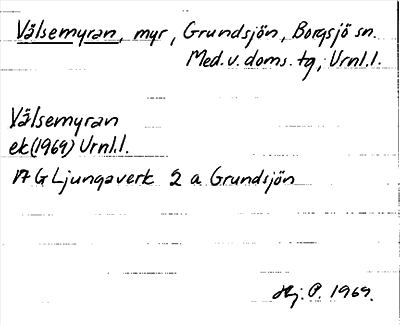 Välsemyran, myr, Grundsjön, Borgsjö sn.
Med. v. doms. tg, Urnl.l.
Välsemyran
ek(1969) Urnl.l.
17 G Ljungaverk 2 a Grundsjön
Hj. P. 1969.